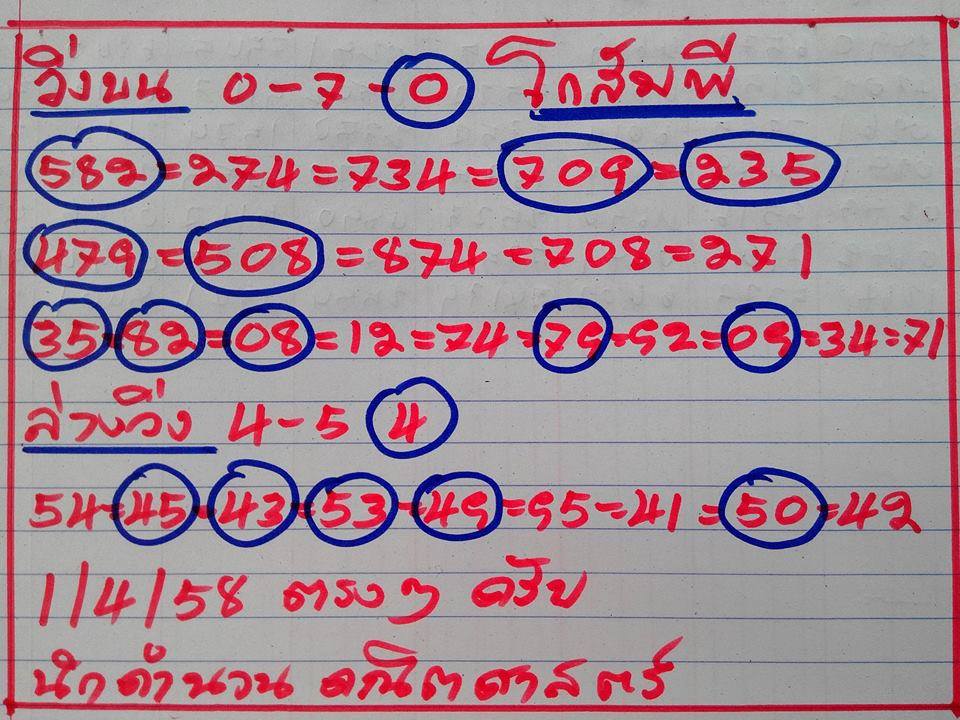 วิ่งบน 0-7-0 โกสัมพี
582=274=734=709=235
479=508=874=708=271
35=82=08=12=74=79=92=09=34=71
ล่างวิ่ง 4-5 4
54=45=43=53=49=95=41=50=42
1/4/58 ตรงๆ ครับ
นักคำนวน คณิตศาสตร์